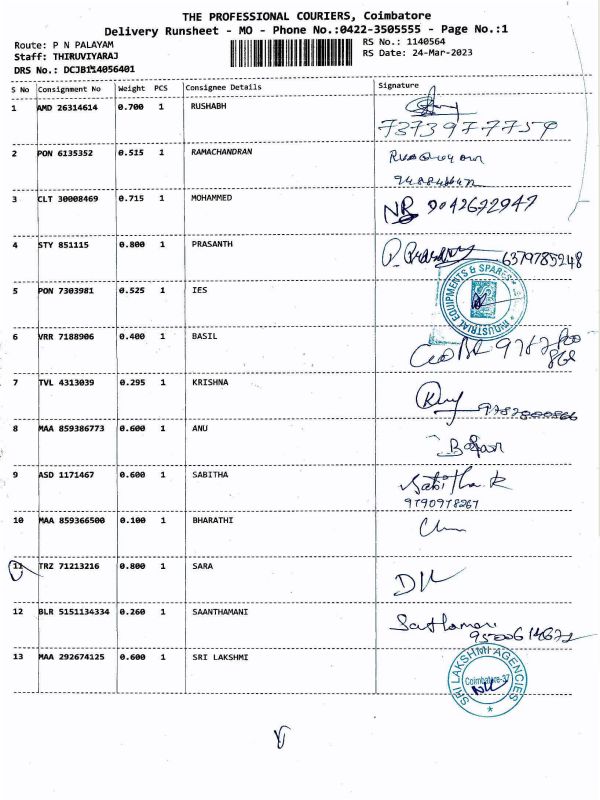 THE PROFESSIONAL COURIERS, Coimbatore
Delivery Runsheet - MO - Phone No.:0422-3505555 - Page No.:1
Route: P N PALAYAM
RS No.: 1140564
Staff: THIRUVIYARAJ
RS Date: 24-Mar-2023
DRS No.: DCJB114056401
S No Consignment No Weight PCS Consignee Details Signature
1 AMD 26314614 0.700 1 RUSHABH
7373977759
2 PON 6135352 0.515 1 RAMACHANDRAN
3 CLT 30008469 0.715 1 MOHAMMED NB 9042622947
4 STY 851115 0.800 1 PRASANTH 6379785248
5 PON 7303981 0.525 1 IES
INDUSTRIAL EQUIPMENTS & SPARES
6 VRR 7188906 0.400 1 BASIL
7 TVL 4313039 0.295 1 KRISHNA
8 MAA 859386773 0.600 1 ANU
9 ASD 1171467 0.600 1 SABITHA Sabitha.R
9790978267
10 MAA 859366500 0.100 1 BHARATHI
11 TRZ 71213216 0.800 1 SARA
12 BLR 5151134334 0.260 1 SAANTHAMANI
13 MAA 292674125 0.600 1 SRI LAKSHMI
SRI LAKSHMI AGENCIES
Coimbatore-37